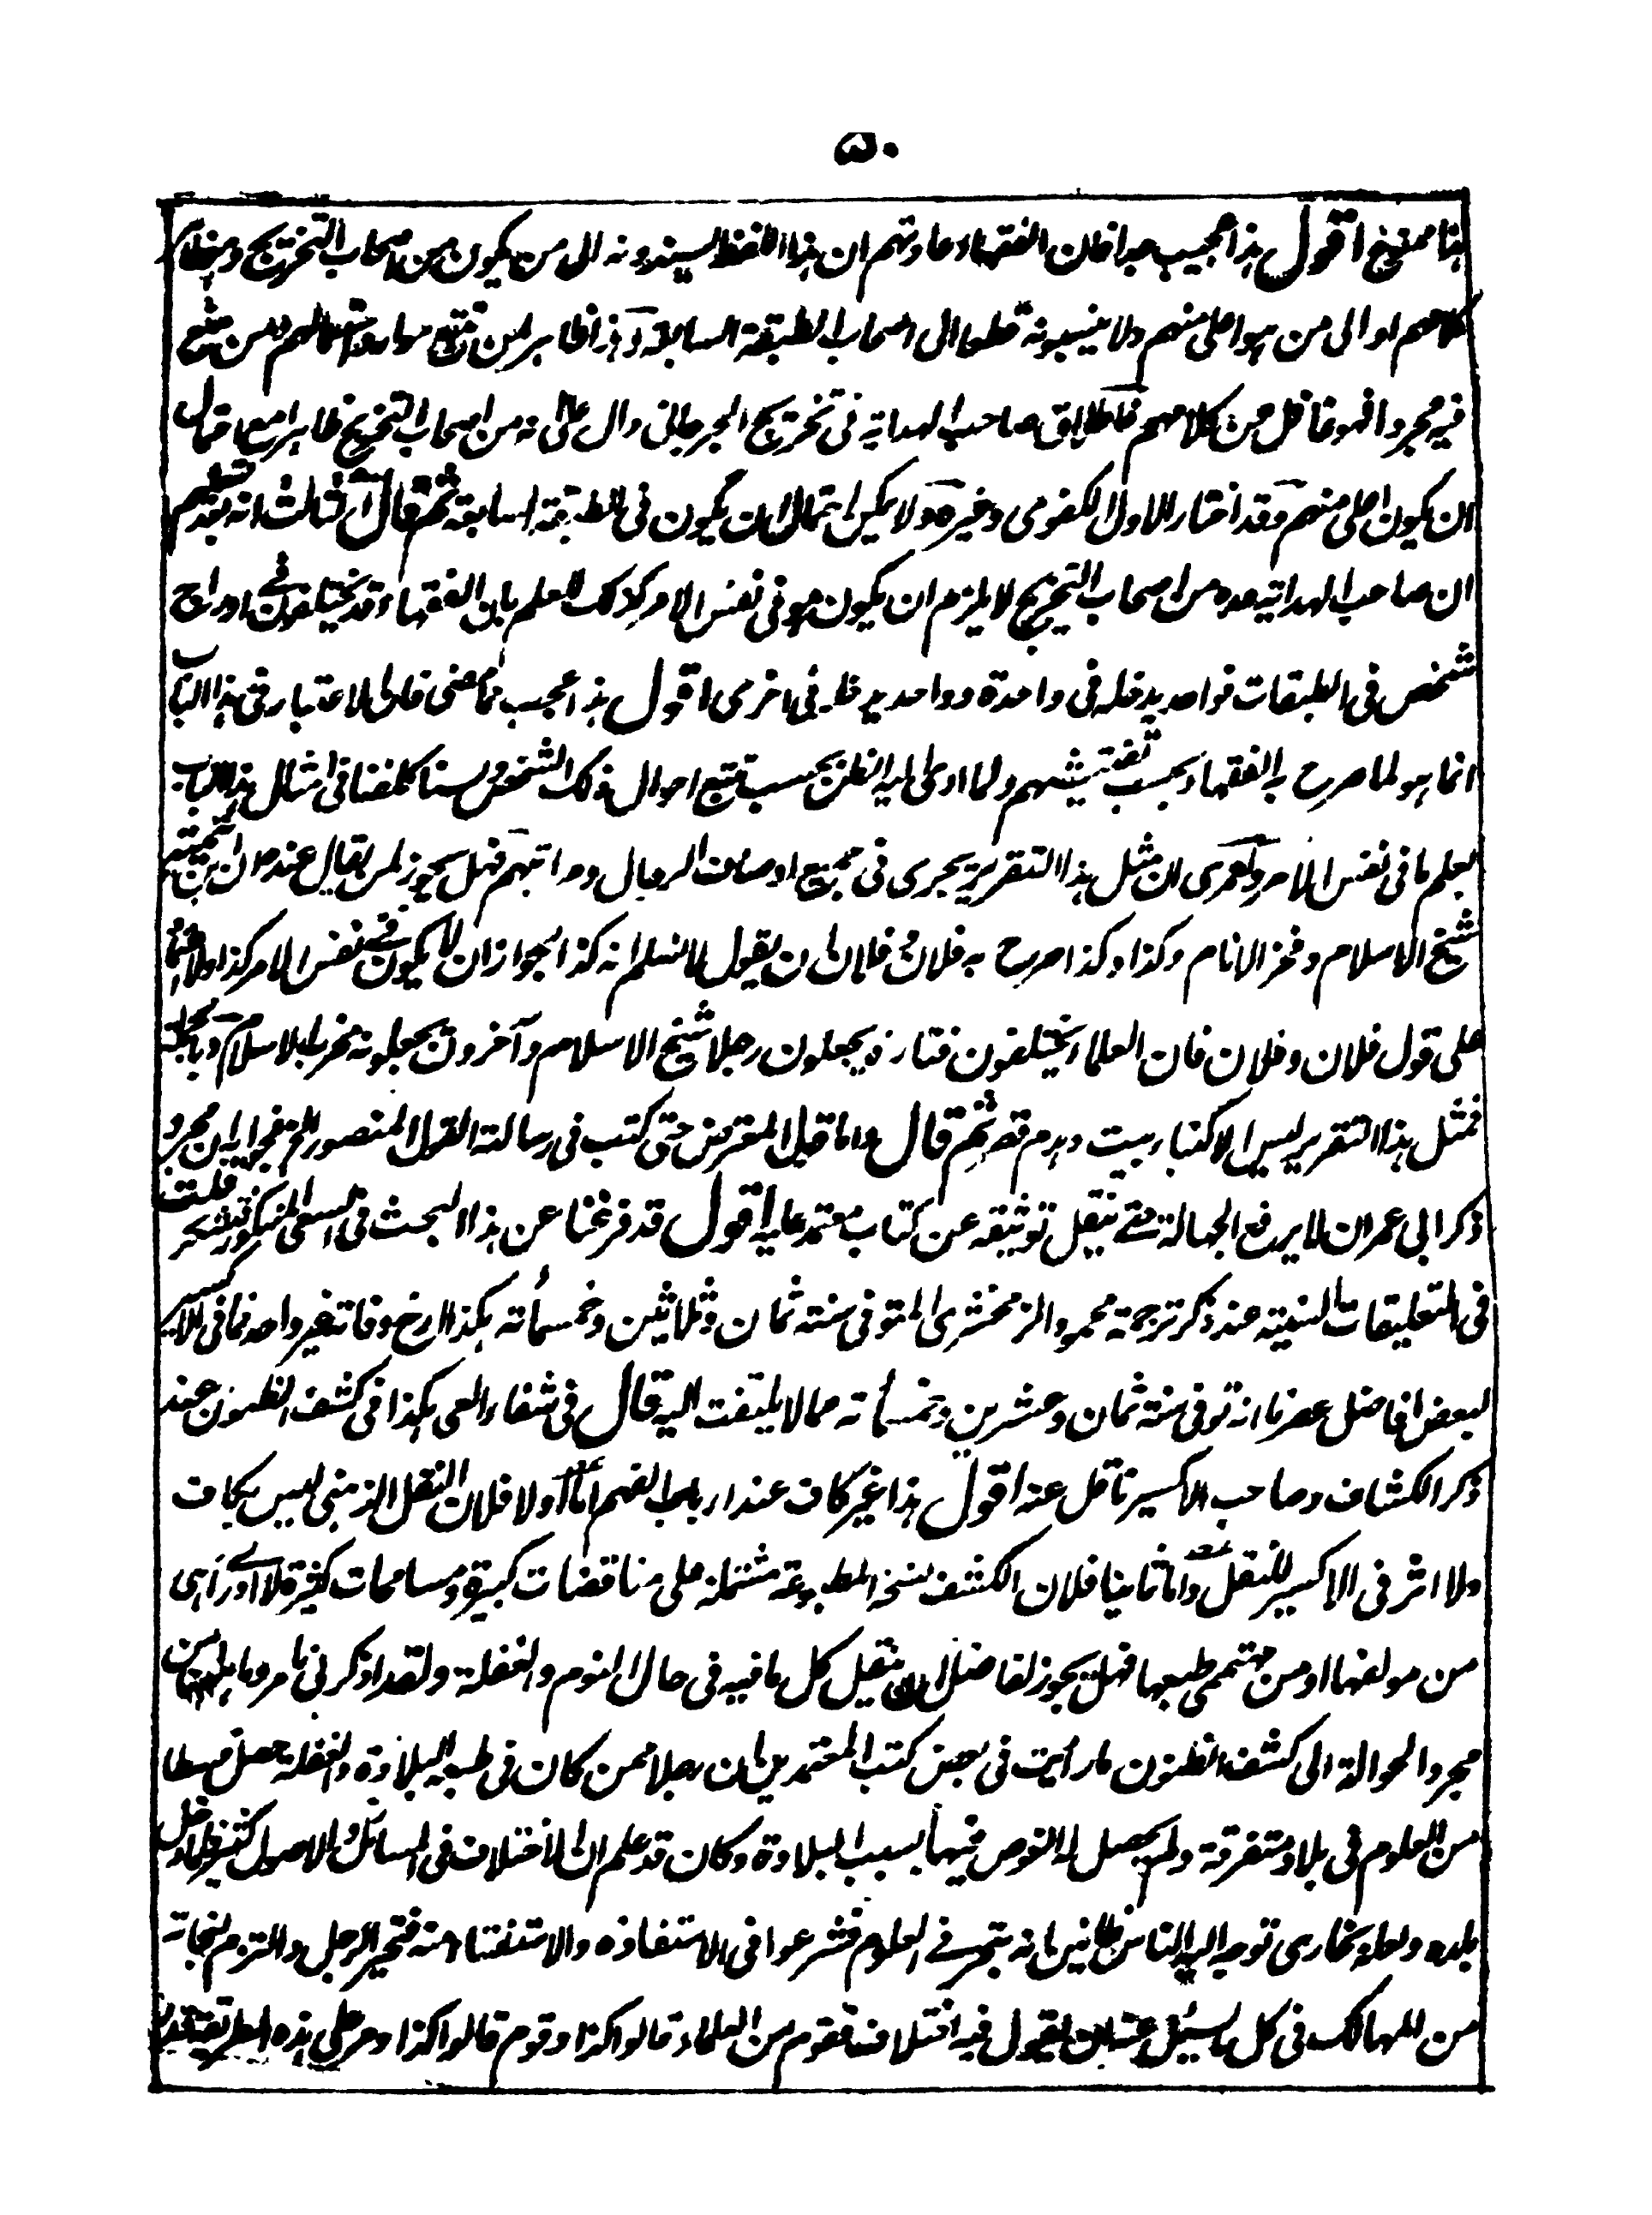 ۵۰
هنا ممنوع اقول هذا عجيب جدا فان الفقهاء عادتهم ان هذا اللفظ يسندونه الى من يكون من اصحاب التخريج
كلامهم او الى من هو اعلى منهم ولا ينسبونه قطعا الى اصحاب الطبقة السابعة وهذا ظاهر لمن تتبع موارد استعمالهم ومن منع
فيه مجردا فهو غافل عن كلامهم فاطلاق صاحب الهداية فى تخريج الجرجانى دال على انه من اصحاب التخريج ظاهرا مع احتمال
ان يكون اعلى منهم وقد اختار الاول الكفوى وغيره ولا يمكن احتمال ان يكون فى الطبقة السابعة ثم قال الثالث انه بعد تسليم
ان صاحب الهداية عده من اصحاب التخريج لا يلزم ان يكون هو فى نفس الامر كذلك للعلم بان الفقهاء قد يختلفون فى ادراج
شخص فى الطبقات فواحد يدخله فى واحدة وواحد يدخله فى اخرى اقول هذا عجب مما مضى فان الاعتبار فى هذا الباب
انما هو لما صرح به الفقهاء بحسب تفتيشهم ولما ادى اليه الظن بحسب تتبع احوال ذلك الشخص ولسنا كلفنا فى امثال هذا الباب
بعلم ما فى نفس الامر ولعمرى ان مثل هذا التقرير يجرى فى جميع اوصاف الرجال ومراتبهم فهل يجوز لمن يقال عنده ان ابن تيمية
شيخ الاسلام وفخر الانام وكذا وكذا صرح به فلان وفلان ان يقول لا نسلم انه كذا لجواز ان لا يكون فى نفس الامر كذا ولا اعتماد
على قول فلان وفلان فان العلماء يختلفون فتارة يجعلون رجلا شيخ الاسلام وآخرون يجعلونه مخرب الاسلام وبالجملة
فمثل هذا التقرير ليس الا كبناء بيت وهدم قصر ثم قال واما قبل المعترض حتى كتب فى رسالته القول المنصور ان مجرد
ذكر ابى عمران لا يرفع الجهالة حتى ينقل توثيقه عن كتاب معتمد عليه اقول قد فرغنا عن هذا البحث فى السعى المشكور فليشكر قلت
فى التعليقات السنية عند ذكر ترجمة محمود الزمخشرى المتوفى سنة ثمان وثلاثين وخمسمأته هكذا ارخ وفاته غير واحد فما فى الاكسير
لبعض افاضل عصرنا انه توفى سنة ثمان وعشرين وخمسمأته مما لا يلتفت اليه قال فى شفاء العى هكذا فى كشف الظنون عند
ذكر الكشاف وصاحب الاكسير ناقل عنه اقول هذا غير كاف عند ارباب الفهم اما اولا فلان النقل الذهنى ليس بكاف
ولا اثر فى الاكسير للنقل واما ثانيا فلان الكشف نسخه المطبوعة مشتملة على مناقضات كبيرة ومسامحات كثيرة لا ادرى اهى
من مولفها او من مهتمى طبعها فهل يجوز لفاضل ان ينقل كل ما فيه فى حال النوم والغفلة ولقد اذكرنى ما
مجرد الحوالة الى كشف الظنون ما رأيت فى بعض كتب المعتمدين ان رجلا ممن كان فى طبعه البلادة والغفلة حصل قسطا
من العلوم فى بلاد متفرقة ولم يحصل له الغوص فيها بسبب البلادة وكان قد علم ان الاختلاف فى المسائل والاصول كثير فلما دخل
بلده ولعله بخارى توجه اليه الناس ظانين انه تبحر فى العلوم فشرعوا فى الاستفادة والاستفتاء منه فتحير الرجل والتزم لنجاته
من المهالك فى كل ما سئل عنه ان يقول فيه اختلاف فقوم من العلماء قالوا كذا وقوم قالوا كذا ومر على هذه